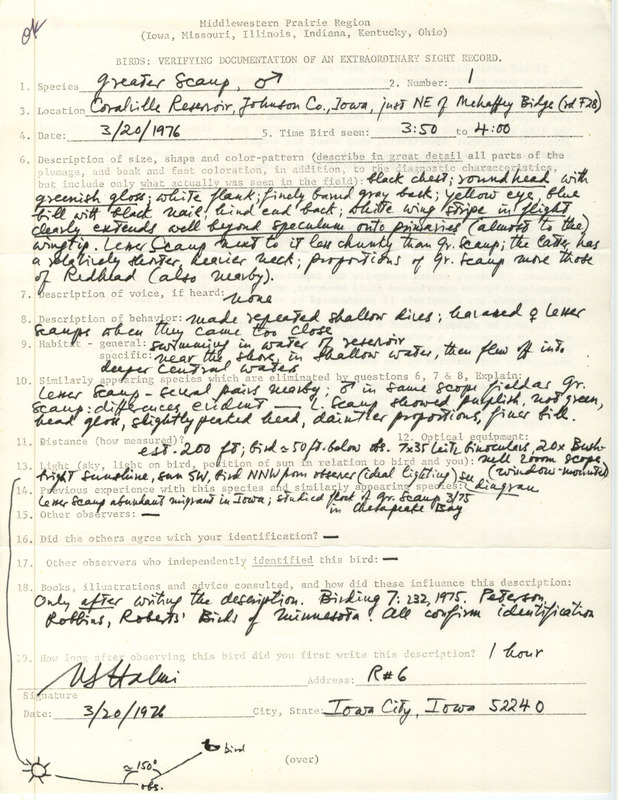 OK
Middlewestern Prairie Region
(Iowa, Missouri, Illinois, Indiana, Kentucky, Ohio)
BIRDS: VERIFYING DOCUMENTATION OF AN EXTRAORDINARY SIGHT RECORD.
1. Species Greater Scaup, ♂ 2. Number: 1
3. Location Coralville Reservoir, Johnson Co., Iowa, just NE of Mehaffey Bidge (rd F28)
4. Date: 3/20/1976 5. Time Bird seen: 3:50 to 4:00
6. Description of size, shape and color-pattern (describe in great detail all parts of the
plumage, and beak and feet coloration, in addition, to the diagnostic characteristics,
but include only what actually was seen in the field): black chest; round head with
greenish gloss; white flank; finely barred grey back; yellow eye, blue
bill with black nail, hind end back; white wing stripe in flight
clearly extends well beyond speculum onto primaries (almost to the)
wingtip. Lesser Scaup next to it less chunky than Gr. Scaup; the latter has
a relatively shorter, heavier neck; proportions of Gr. Scaup more those
of Redhead (also nearby).
7. Description of voice, if heard: none
8. Description of behavior: made repeated shallow dives; harassed ♀ lesser
scaups when they came too close
9. Habitat - general: swimming in water of reservoir
specific: near the shore, in shallow water, then flew off into
deeper central waters
10. Similarly appearing species which are eliminated by questions 6, 7 & 8, Explain:
Lesser Scaup - several pairs nearby; ♂ in same scope field as Gr.
Scaup: differences evident — L. Scaup showed purplish, not green,
head gloss, slightly peaked head, daintier proportions, finer bill.
11. Distance (how measured)? est. 200 ft; bird ≈ 50 ft. below obs. 12. Optical equipment: 7x35 Leitz binoculars, 20x Bush-
nell zoom scope
(window-mounted)
13. Light (sky, light on bird, position of sun in relation to bird and you):
bright sunshine, sun SW, bird NNW from observer (ideal lighting) see diagram
14. Previous experience with this species and similarly appearing species:
Lesser Scaup abundant migrant in Iowa; studied flock of Gr. Scaup 3/75
in Chesapeake Bay
15. Other observers: —
16. Did the others agree with your identification? —
17. Other observers who independently identified this bird: —
18. Books, illustrations and advice consulted, and how did these influence this description:
Only after writing the description. Birding 7: 232, 1975. Peterson,
Robbins, Roberts' Birds of Minnesota. All confirm identification
19. How long after observing this bird did you first write this description? 1 hour
Address: R#6
Signature
Date: 3/20/1976 City, State: Iowa City, Iowa 52240
bird
≈150°
obs.
(over)